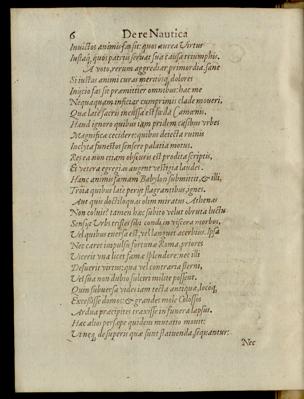 6 De re Nautica
Invictos animis fas sit: quos aurea Virtus
Iustaq́, quos patriũ servat sua causa triumphis.
A voto, rerum aggrediar primordia, sane
Si iustas animi curas meritosq́ dolores
Iniicio fas sit præmittier omnibus: hac me
Nequaquam inficiar cumprimis clade moveri,
Qua late sacris incussa est fuda Camœnis.
Haud ignoro quibus iam pridem casibus urbes
Magnificæ cecidere: quibus deiecta ruinis
Inclyta functos sensere palatia motus.
Res ea non etiam obscuris est prodita scriptis,
Et vetera egregias augent vestigia laudes.
Hanc animis famam Babylon submittet, & illi,
Troia quibus late perijt flagrantibus, ignes.
Aut quis doctiloquas olim miratus Athenas
Non coluit? tamen hac subito velut obruta luctu
Sensit Urbs tristes sibi condi in viscera morbos,
Vel quibus eversa est, vel languet acerbius. Ipsa
Nec caret impulsu fortunæ Roma: priores
Vicerit una licet famæ splendore: nec illi
Defuerit virtus: qua vel contraria sterni,
Vel sua non dubio fulciri milite possint.
Quin subversa vides iam tecta antiqua, locosq́
Excessisse domos: & grandes mole Colossos
Ardua præcipites traxisse in funera lapsus.
Hac alios persæpe quidem mutatio movit:
Vineq́ de superis quæ sunt statuenda sequantur:
Nec